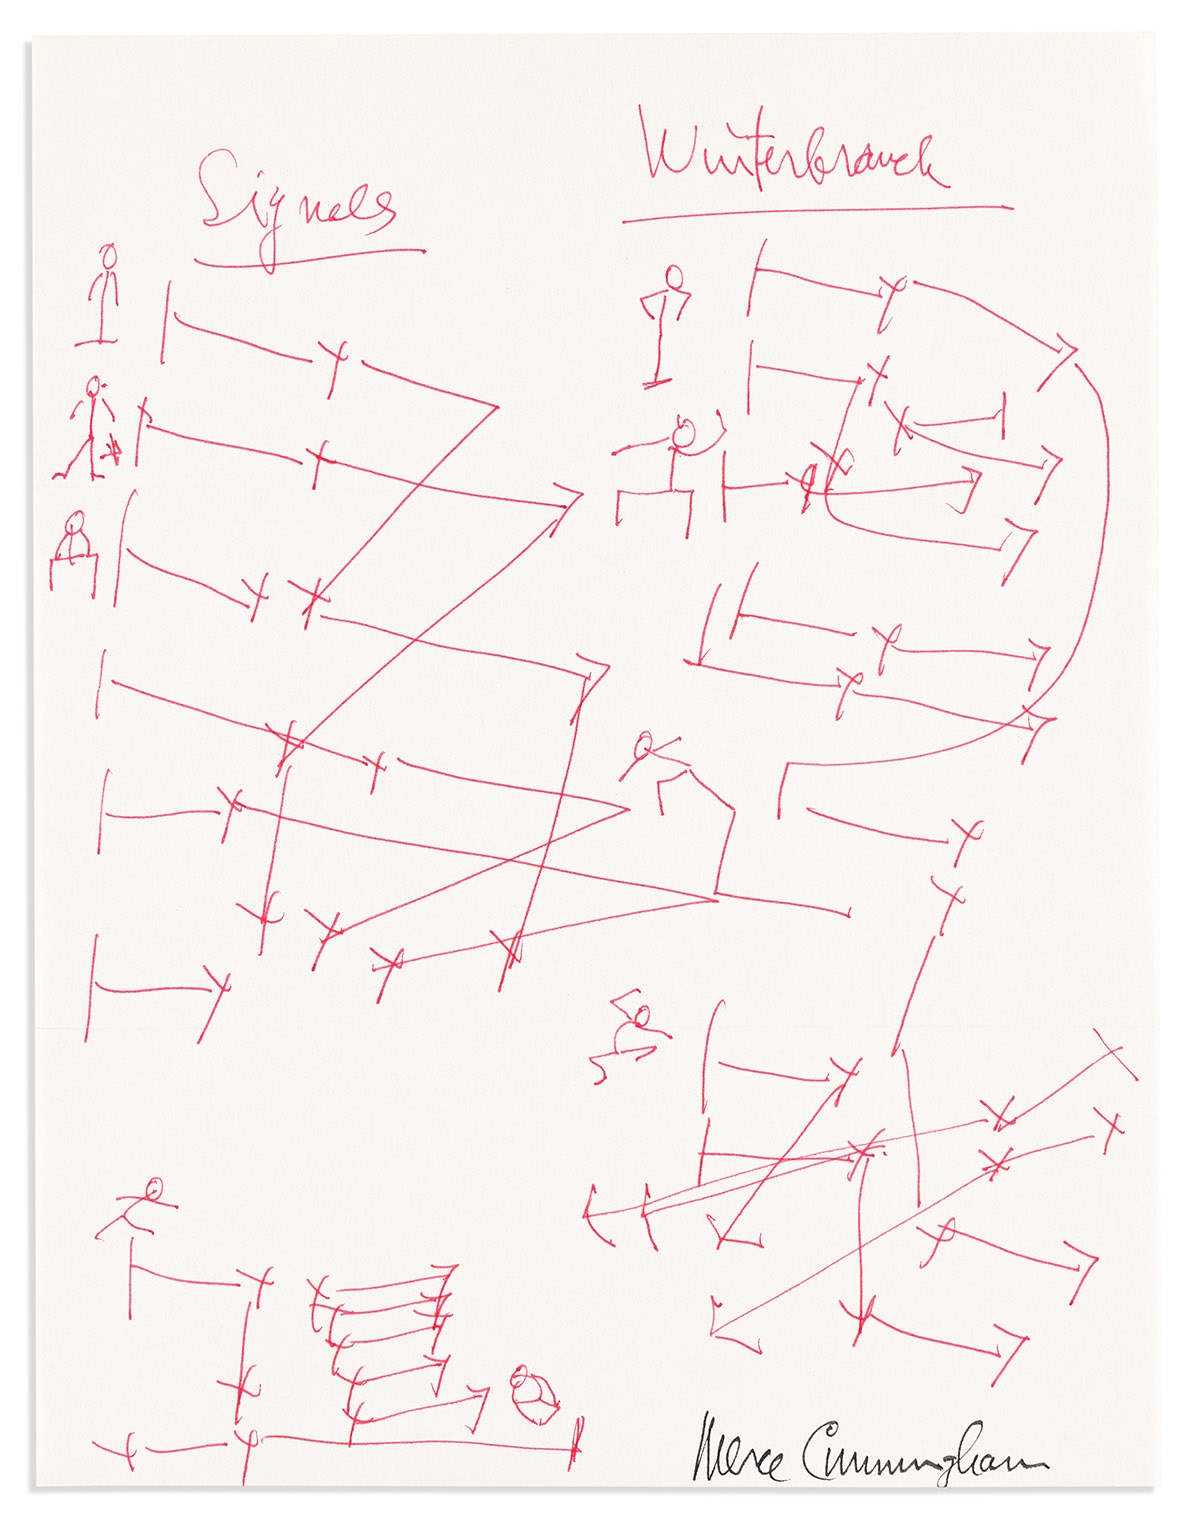 Signals
Winterbranch
Merce Cunningham